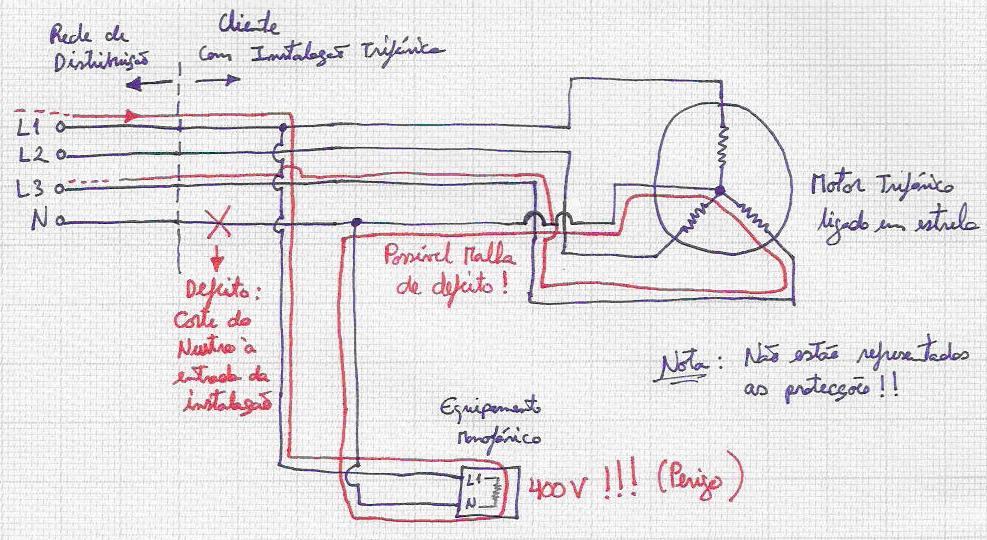 Rede de
Distribuição
Cliente
Com Instalação Trifásica
L1
L2
L3
N
Motor Trifásico
ligado em estrela
Possível Malha
de defeito!
Defeito:
Corte do
Neutro à
entrada da
instalação
Nota: Não estão representados
as protecções!!
Equipamento
Monofásico
L1
N
400V !!! (Perigo)